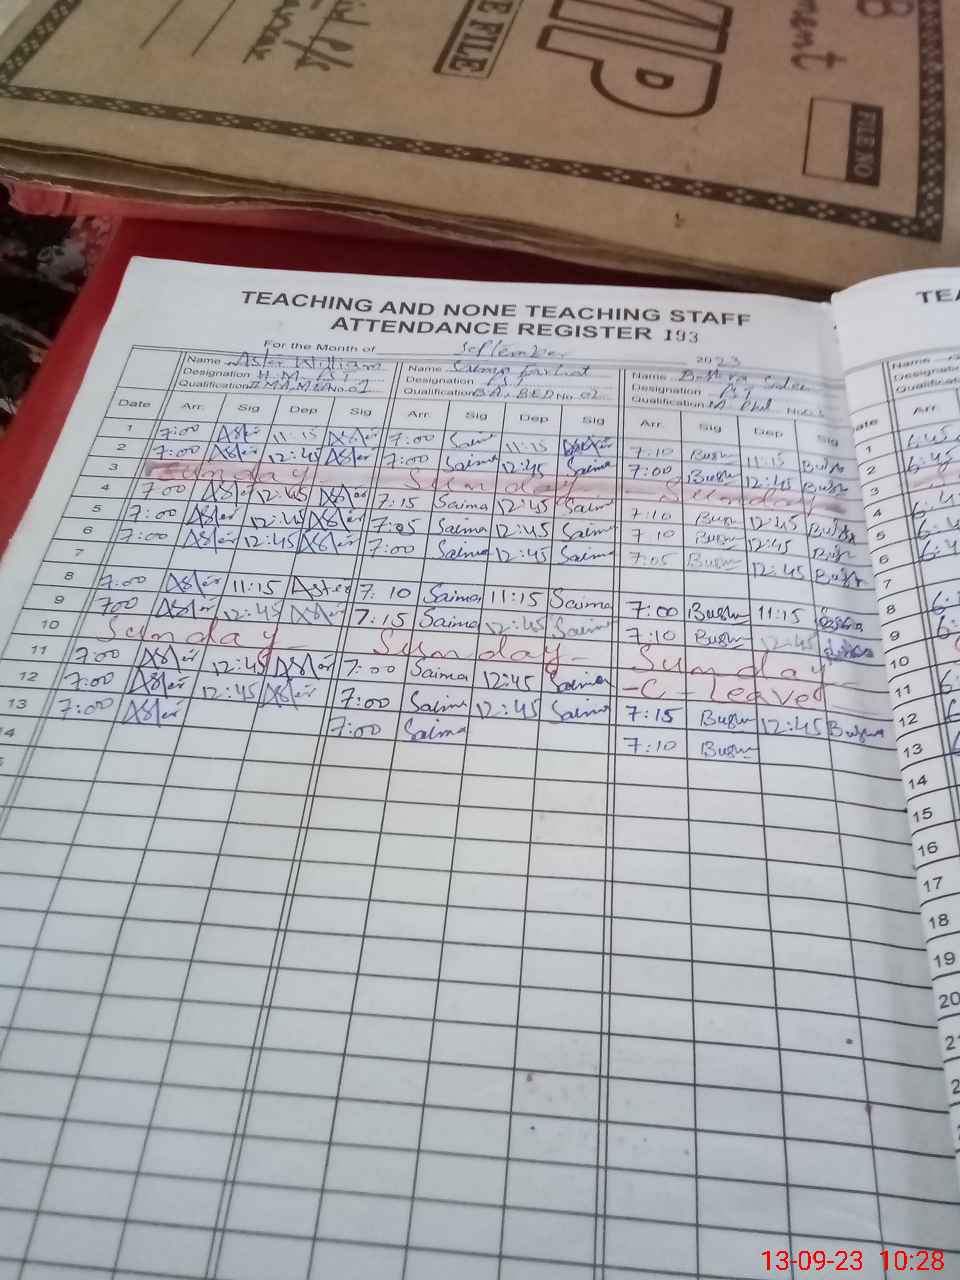 FILE
MP
FILE NO
TEACHING AND NONE TEACHING STAFF
ATTENDANCE REGISTER 193
For the Month of September 2023
Name Aster William Name Name Bushra
Designation H.M. PST Designation PST Designation PST
Qualification M.A, M.Ed No. 02 Qualification B.A, B.ED No. 02 Qualification
Date Arr. Sig Dep Sig Arr. Sig Dep Sig Arr. Sig Dep Sig
1 7:00 Aster 11:15 Aster 7:00 Saima 11:15 7:10 Bush 11:15 Bush
2 7:00 Aster 12:45 Aster 7:00 Saima 12:45 Saima 7:00 Bush 12:45 Bush
3 Sunday Sunday Sunday
4 7:00 Aster 12:45 Aster 7:15 Saima 12:45 Saima 7:10 Bush 12:45 Bush
5 7:00 Aster 12:45 Aster 7:05 Saima 12:45 Saima 7:10 Bush 12:45 Bush
6 7:00 Aster 12:45 Aster 7:00 Saima 12:45 Saima 7:05 Bush 12:45 Bush
7
8 7:00 Aster 11:15 Aster 7:10 Saima 11:15 Saima 7:00 Bush 11:15
9 700 Aster 12:45 Aster 7:15 Saima 12:45 Saima 7:10 Bush 12:45
10 Sunday Sunday Sunday
11 7:00 Aster 12:45 Aster 7:00 Saima 12:45 Saima -C- Leaved
12 7:00 Aster 12:45 Aster 7:00 Saima 12:45 Saima 7:15 Bush 12:45 Bush
13 7:00 Aster 7:00 Saima 7:10 Bush
TEA
Name
Designat
Qualificat
Arr
1 6:45
2 6:45
3
4
5
6
7
8
9
10
11
12
13
14
15
16
17
18
19
20
13-09-23 10:28